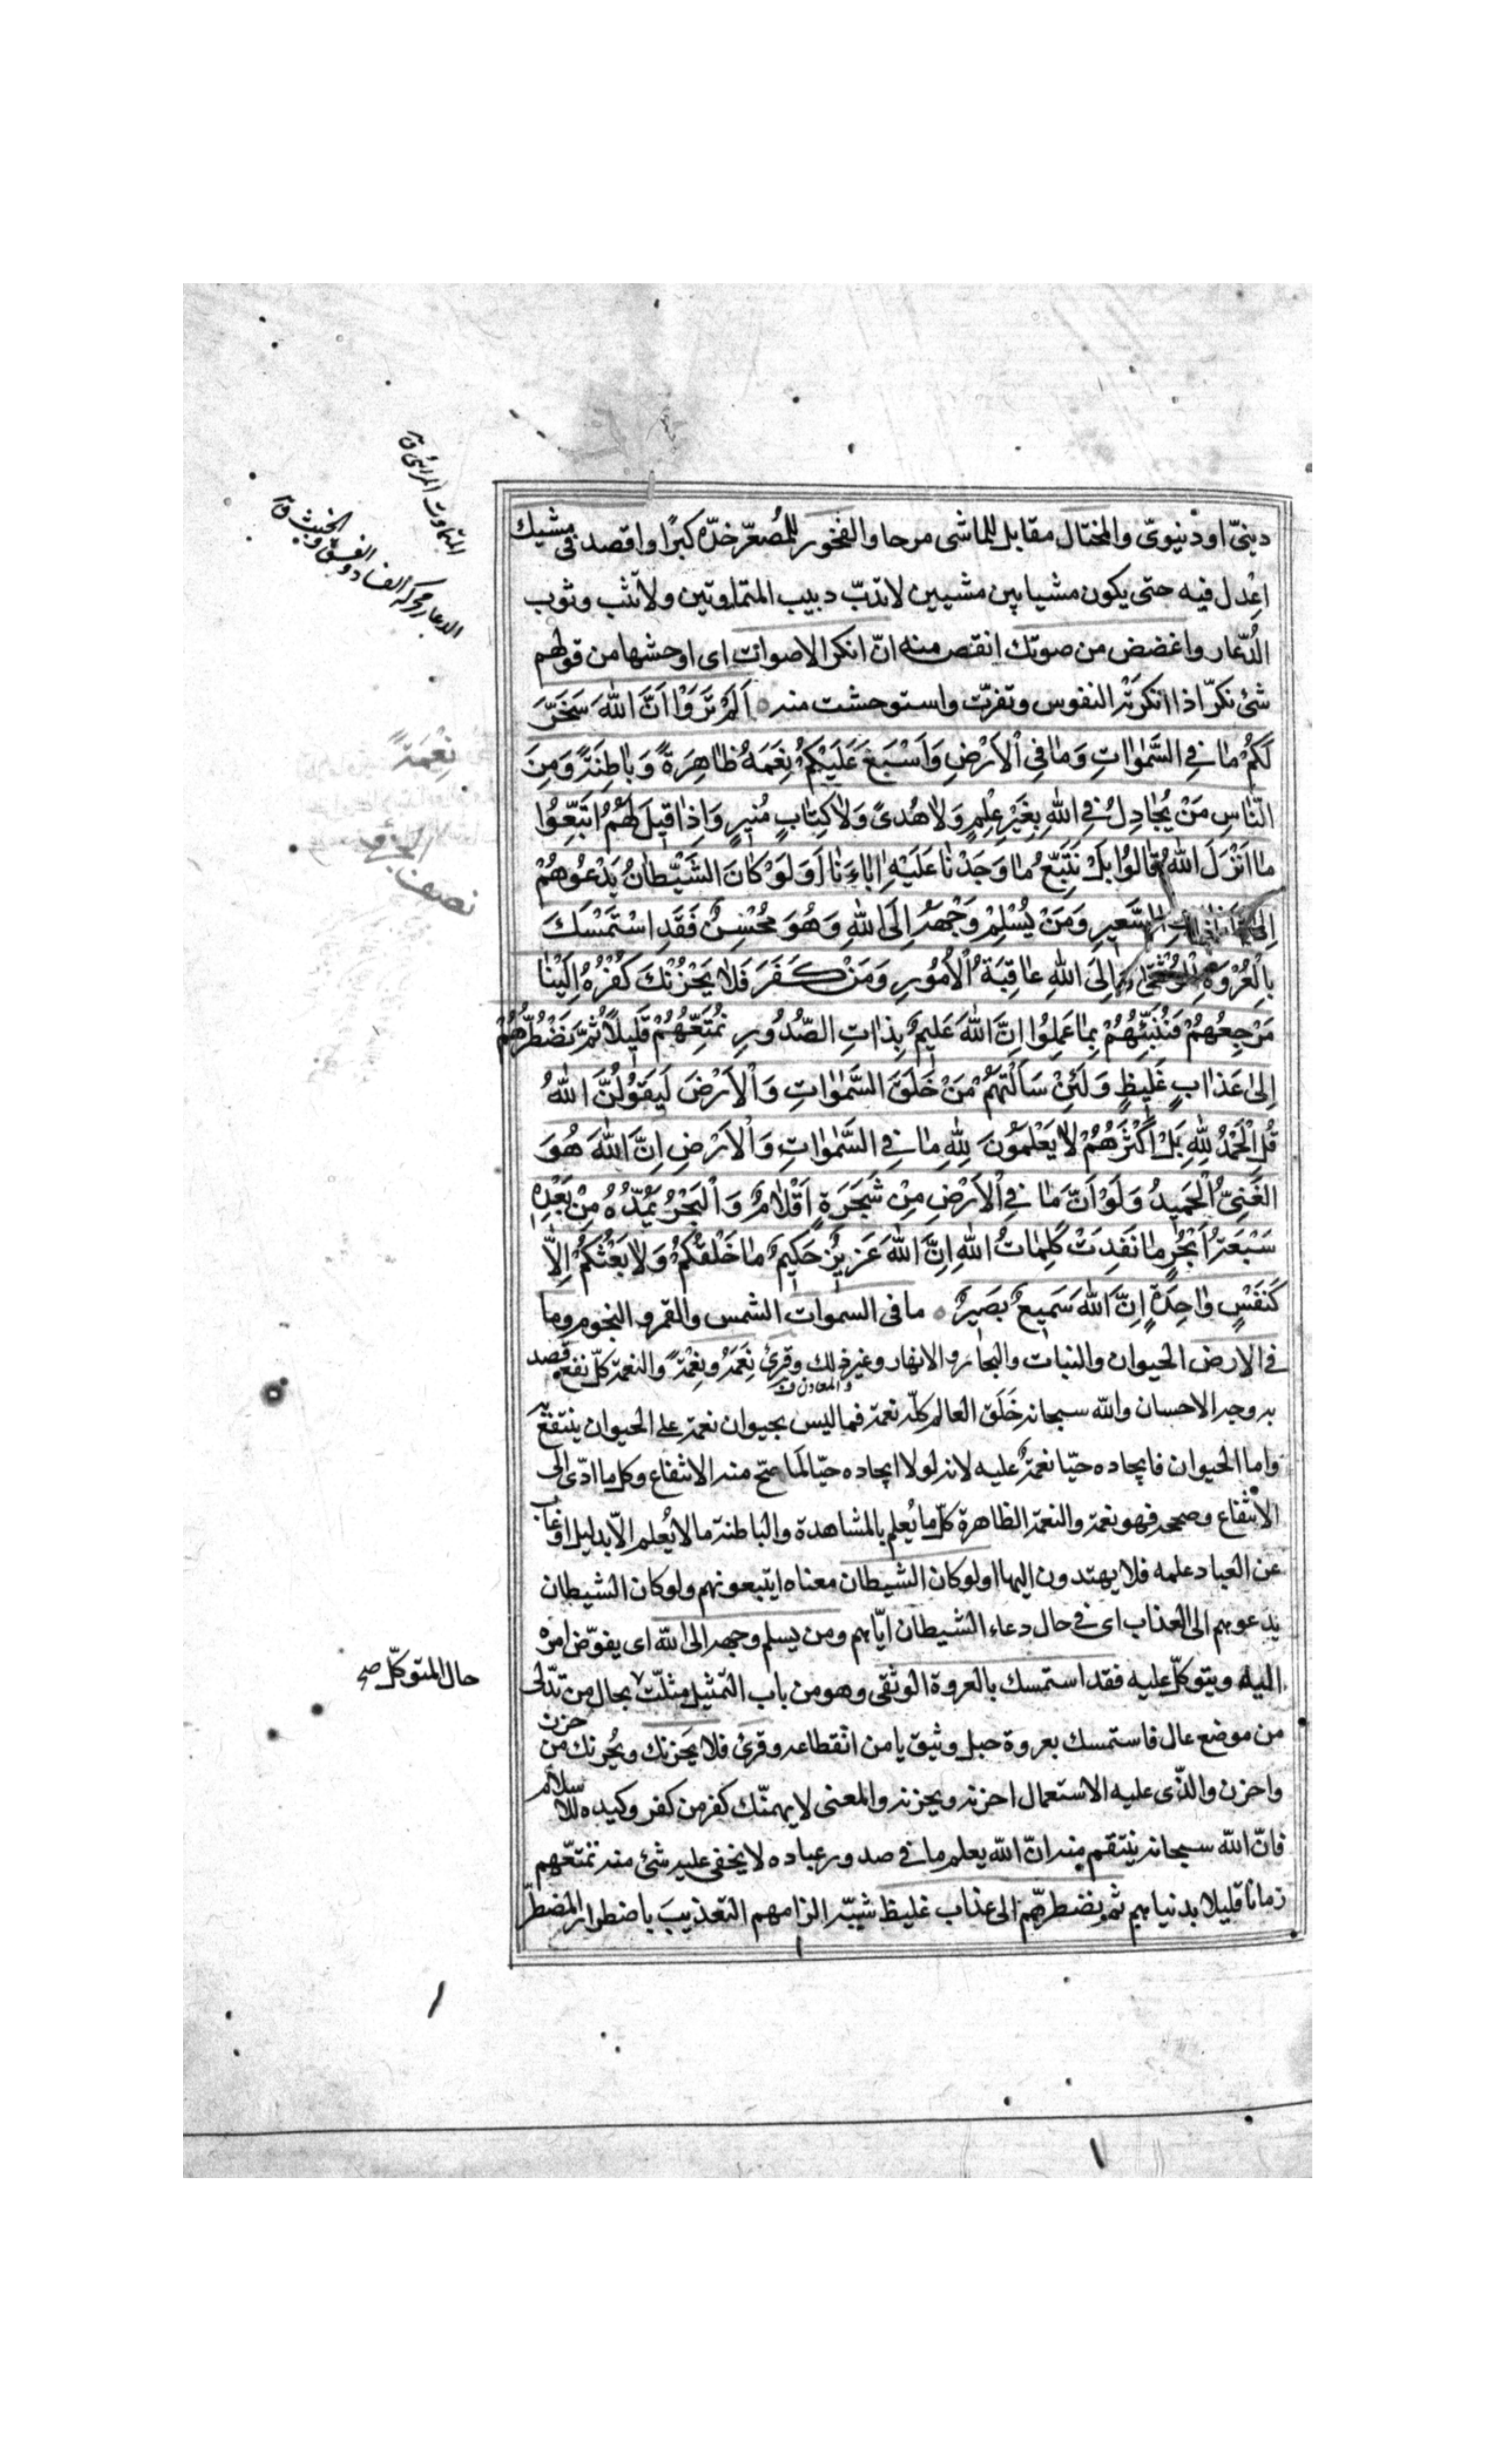 دينىّ او دنيوىّ والمختال مقابل للماشى مرحا والفخور للمُصعّر خدّه كبرًا واقصد فى مشيك
اعْدل فيه حتى يكون مشيا بين مشيين لا تدبّ دبيب المتماوتين ولا تثب وثوب
الدُّعّار واغضض من صوتك انقص منه انّ انكر الاصوات اى اوحشها من قولهم
شئ نكرٌ اذا انكرته النفوس ونفرت واستوحشت منه ٥ اَلَمْ تَرَوْا اَنَّ اللّٰهَ سَخَّرَ
لَكُمْ مٰا فِي السَّمٰوٰاتِ وَمٰا فِي الْاَرْضِ وَاَسْبَغَ عَلَيْكُمْ نِعَمَهُ ظٰاهِرَةً وَبٰاطِنَةً وَمِنَ
النّٰاسِ مَنْ يُجٰادِلُ فِي اللّٰهِ بِغَيْرِ عِلْمٍ وَلٰا هُدىً وَلٰا كِتٰابٍ مُنيرٍ وَاِذٰا قيلَ لَهُمُ اتَّبِعُوا
مٰا اَنْزَلَ اللّٰهُ قٰالُوا بَلْ نَتَّبِعُ مٰا وَجَدْنٰا عَلَيْهِ اٰبٰاءَنٰا اَوَلَوْ كٰانَ الشَّيْطٰانُ يَدْعُوهُمْ
اِلىٰ عَذٰابِ السَّعيرِ وَمَنْ يُسْلِمْ وَجْهَهُ اِلَى اللّٰهِ وَهُوَ مُحْسِنٌ فَقَدِ اسْتَمْسَكَ
بِالْعُرْوَةِ الْوُثْقىٰ وَاِلَى اللّٰهِ عٰاقِبَةُ الْاُمُورِ وَمَنْ كَفَرَ فَلٰا يَحْزُنْكَ كُفْرُهُ اِلَيْنٰا
مَرْجِعُهُمْ فَنُنَبِّئُهُمْ بِمٰا عَمِلُوا اِنَّ اللّٰهَ عَليمٌ بِذٰاتِ الصُّدُورِ نُمَتِّعُهُمْ قَليلاً ثُمَّ نَضْطَرُّهُمْ
اِلىٰ عَذٰابٍ غَليظٍ وَلَئِنْ سَاَلْتَهُمْ مَنْ خَلَقَ السَّمٰوٰاتِ وَالْاَرْضَ لَيَقُولُنَّ اللّٰهُ
قُلِ الْحَمْدُ لِلّٰهِ بَلْ اَكْثَرُهُمْ لٰا يَعْلَمُونَ لِلّٰهِ مٰا فِي السَّمٰوٰاتِ وَالْاَرْضِ اِنَّ اللّٰهَ هُوَ
الْغَنِيُّ الْحَميدُ وَلَوْ اَنَّ مٰا فِي الْاَرْضِ مِنْ شَجَرَةٍ اَقْلٰامٌ وَالْبَحْرُ يَمُدُّهُ مِنْ بَعْدِهِ
سَبْعَةُ اَبْحُرٍ مٰا نَفِدَتْ كَلِمٰاتُ اللّٰهِ اِنَّ اللّٰهَ عَزيزٌ حَكيمٌ مٰا خَلْقُكُمْ وَلٰا بَعْثُكُمْ اِلّٰا
كَنَفْسٍ وٰاحِدَةٍ اِنَّ اللّٰهَ سَميعٌ بَصيرٌ ٥ ما فى السموات الشمس والقمر والنجوم وما
فى الارض الحيوان والنبات والبحار والانهار وغير ذلك وقرئ نِعَمَهُ ونِعْمَةً والنعمة كلّ نفع قصد
والمعادن
به وجه الاحسان والله سبحانه خَلَق العالم كلّه نعمة فما ليس بحيوان نعمة على الحيوان ينتفع به
واما الحيوان فايجاده حيّا نعمةٌ عليه لانه لولا ايجاده حيّا لَما صحّ منه الانتفاع وكل ما ادّى الى
الانتفاع وصححه فهو نعمة والنعمة الظاهرة كلّ ما يُعلم بالمشاهدة والباطنة ما لا يُعلم الّا بدليل او غاب
عن العباد علمه فلا يهتدون اليها اولو كان الشيطان معناه ايتبعونهم ولو كان الشيطان
يدعوهم الى العذاب اى فى حال دعاء الشيطان ايّاهم ومن يسلم وجهه الى الله اى يفوّض امره
اليه ويتوكّل عليه فقد استمسك بالعروة الوثقى وهو من باب التمثيل مثلّت بحال من تدلّى
من موضع عال فاستمسك بعروة حبل وثيق يامن انقطاعه وقرئ فلا يَحزنك ويُحزنك من حزن
واحزن والذى عليه الاستعمال احزنه ويحزنه والمعنى لا يهمنّك كفر من كفر وكيده للاسلام
فانّ الله سبحانه ينتقم منه انّ الله يعلم ما فى صدور عباده لا يخفى عليه شئ منه نمتّعهم
زمانًا قليلا بدنياهم ثم نضطرّهم الى عذاب غليظ شبّه الزامهم التعذيبَ باضطرار المضطرّ
المتماوت المرائى ق
الدعار محركة الفساد والفسق والخبث ق
نِعْمَةً
نصف الجزؤ
حال المتوكّل صح